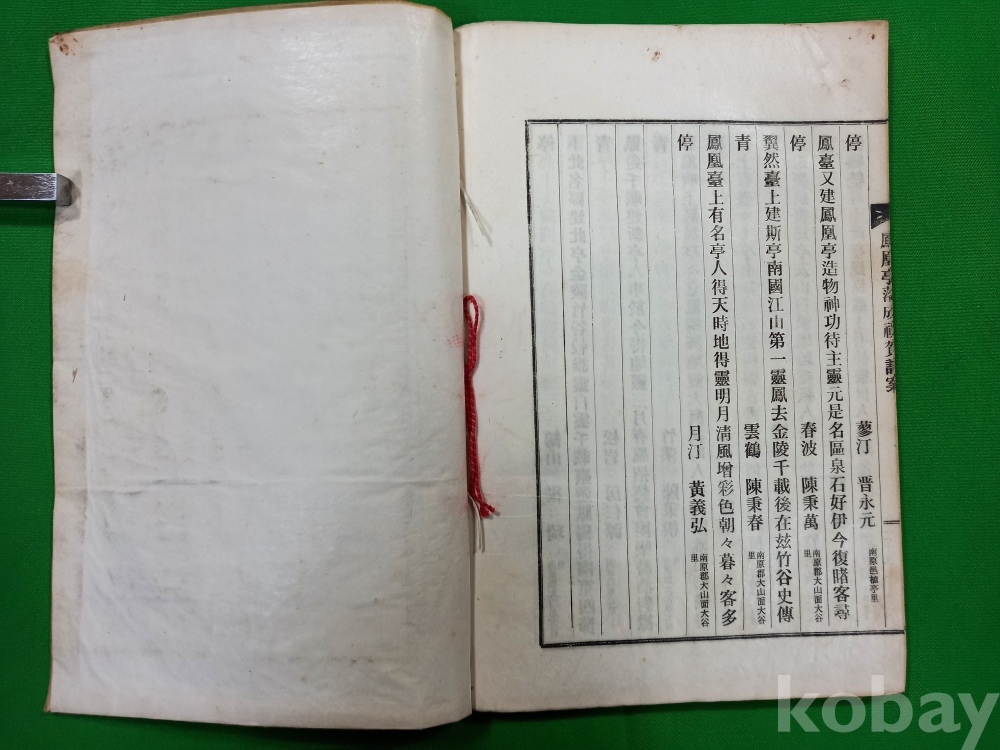 鳳凰亭落成祝賀詩案
停
蓼汀 晋永元 南原邑植亭里
鳳臺又建鳳凰亭造物神功待主靈元是名區泉石好伊今復睹客尋
停
春波 陳秉萬 南原郡大山面大谷里
翼然臺上建斯亭南國江山第一靈鳳去金陵千載後在玆竹谷史傳
青
雲鶴 陳秉春 南原郡大山面大谷里
鳳凰臺上有名亭人得天時地得靈明月清風增彩色朝々暮々客多
停
月汀 黃義弘 南原郡大山面大谷里
kobay